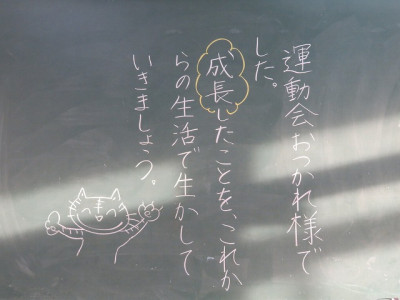 運動会おつかれ様で
した。
成長したことを、これか
らの生活で生かして
いきましょう。